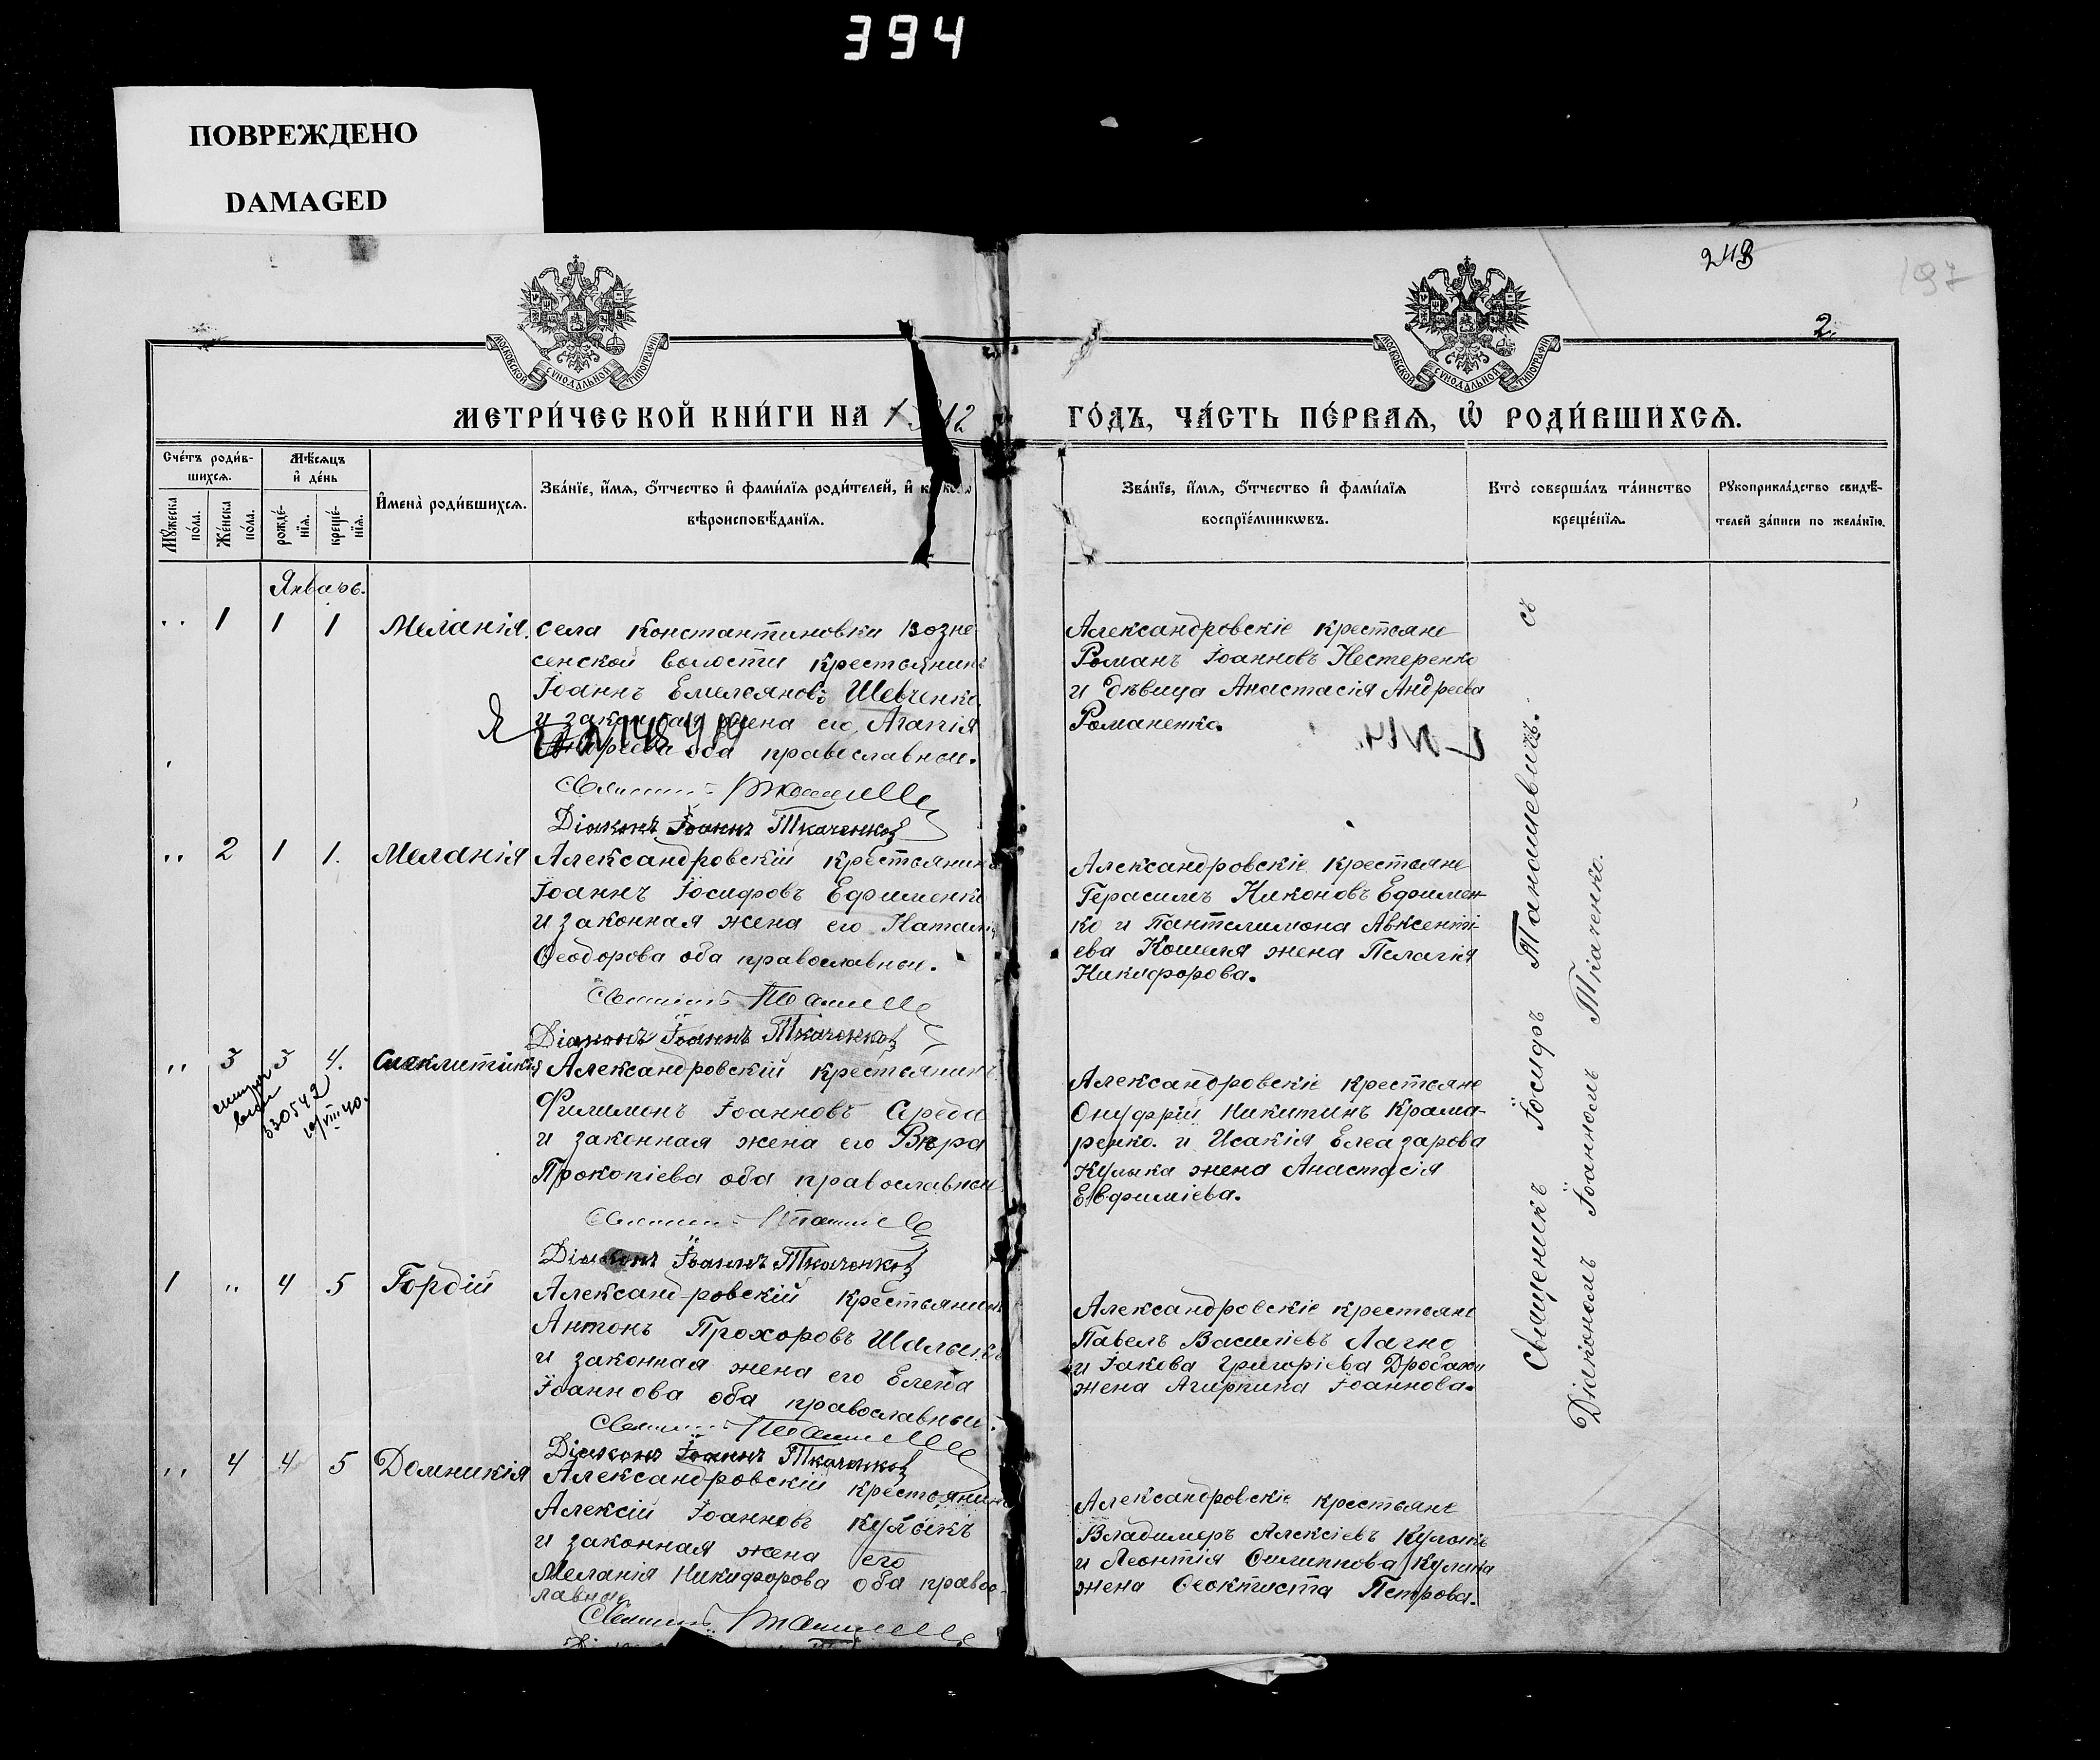 394
ПОВРЕЖДЕНО
DAMAGED
243
197
2.
МОСКОВСКОЙ СѴНОДАЛЬНОЙ ТИПОГРАФІИ
МОСКОВСКОЙ СѴНОДАЛЬНОЙ ТИПОГРАФІИ
МЕТРИ́ЧЕСКОЙ КНИ́ГИ НА 1912
ГО́ДЪ, ЧА́СТЬ ПЕ́РВАѦ, Ѡ҆ РОДИ́ВШИХСѦ.
Сче́тъ роди́в-
шихсѧ.
Мꙋ́жеска по́ла.
Же́нска по́ла.
Мѣ́сѧцъ
и҆ де́нь
рожде́-нїѧ.
креще́-нїѧ.
И҆мена̀ роди́вшихсѧ.
Зва́нїе, и҆́мѧ, ѻ҆́тчество и҆ фамѝлїѧ роди́телей, и҆
вѣроисповѣ́данїѧ.
Зва́нїе, и҆́мѧ, ѻ҆́тчество и҆ фамѝлїѧ
воспрїе́мникѡвъ.
Кто̀ соверша́лъ та́инство
креще́нїѧ.
Рꙋкоприкла́дство свидѣ́-
телей за́писи по жела́нїю.
Январь.
,, 1 1 1 Меланія.
села Константиновки Возне-
сенской волости крестьянинъ
Іоаннъ Емельяновъ Шевченко
и законная жена его Агапія
оба православные.
Діаконъ Іоаннъ Ткаченковъ
Александровскіе крестьяне
Романъ Іоанновъ Нестеренко
и дѣвица Анастасія Андреева
Романенко.
,, 2 1 1. Меланія
Александровскій крестьянинъ
Іоаннъ Іосифовъ Ефименко
и законная жена его Наталія
Ѳеодорова оба православные.
Діаконъ Іоаннъ Ткаченковъ
Александровскіе крестьяне
Герасимъ Никоновъ Ефимен-
ко и Пантелимона Авксенті-
ева Кошеля жена Пелагія
Никифорова.
,, 3 3 4. Синклитикія
330542
19/VIII 40.
Александровскій крестьянинъ
Филимонъ Іоанновъ Середа
и законная жена его Вѣра
Прокопіева оба православные
Діаконъ Іоаннъ Ткаченковъ
Александровскіе крестьяне
Онуфрій Никитинъ Крама-
ренко. и Исакія Елеазарова
Кулыка жена Анастасія
Евфиміева.
1 ,, 4 5 Гордій
Александровскій крестьянинъ
Антонъ Прохоровъ
и законная жена его Елена
Іоаннова оба православные.
Діаконъ Іоаннъ Ткаченковъ
Александровскіе крестьяне
Павелъ Василіевъ Лагно
и Іакова Григоріева Дробахи
жена Агрипина Іоаннова.
,, 4 4 5 Домникія
Александровскій крестьянинъ
Алексій Іоанновъ Кулыкъ
и законная жена его
Меланія Никифорова оба правос-
лавные
Александровскіе крестьяне
Владимеръ Алексіевъ Кулыкъ
и Леонтія Филиппова Кулика
жена Ѳеоктиста Петрова.
Священникъ Іосифъ Таношевичъ. съ
Діакономъ Іоанномъ Ткаченко.